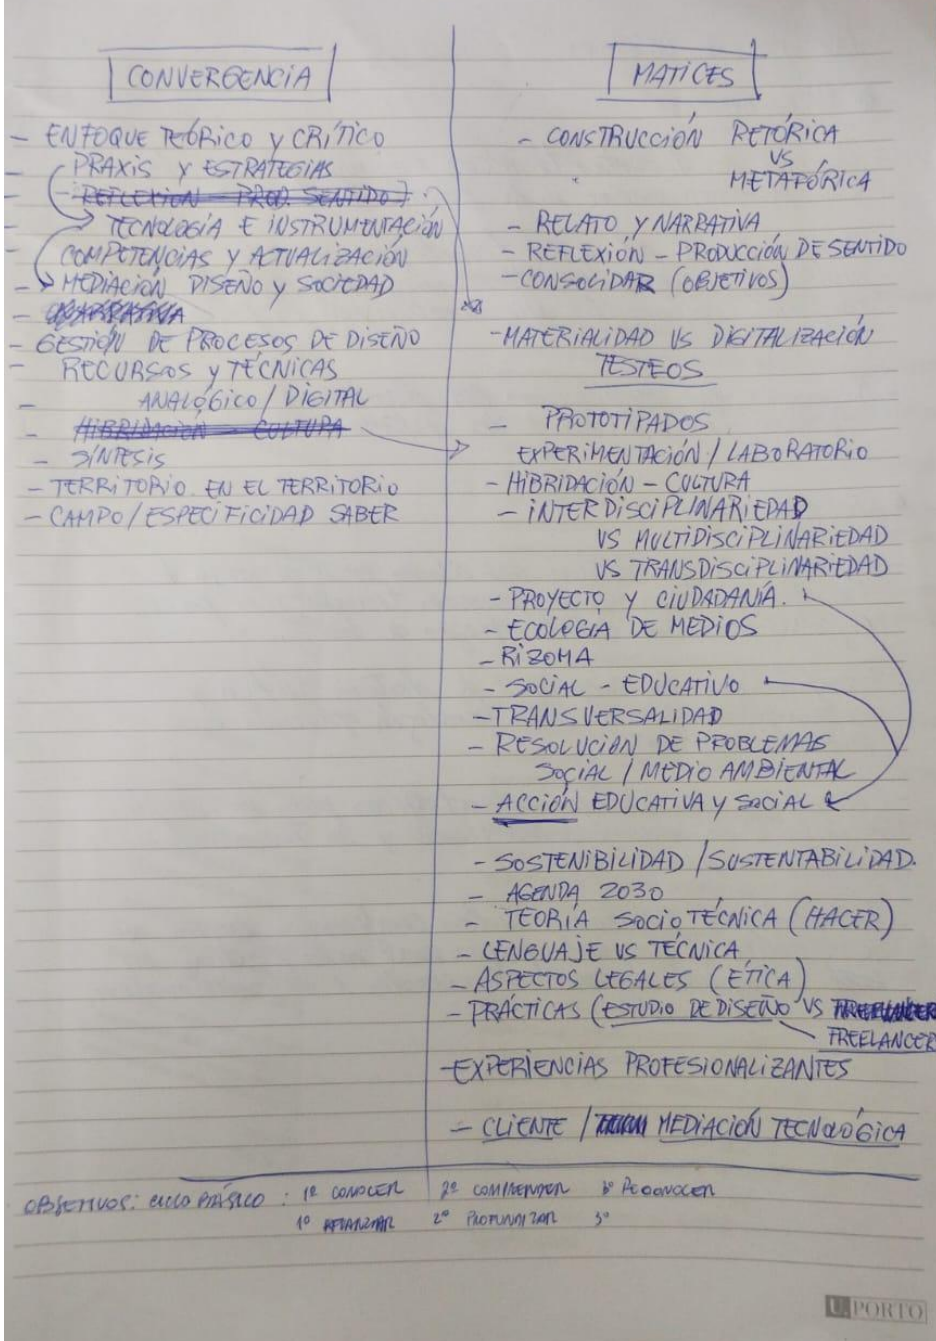 CONVERGENCIA
- ENFOQUE TEÓRICO Y CRÍTICO
- PRAXIS Y ESTRATEGIAS
- REFLEXION - PROD. SENTIDO
- TECNOLOGÍA E INSTRUMENTACIÓN
- COMPETENCIAS Y ACTUALIZACIÓN
- MEDIACIÓN DISEÑO Y SOCIEDAD
- NARRATIVA
- GESTIÓN DE PROCESOS DE DISEÑO
- RECURSOS Y TÉCNICAS
- ANALÓGICO / DIGITAL
- HIBRIDACIÓN - CULTURA
- SÍNTESIS
- TERRITORIO EN EL TERRITORIO
- CAMPO / ESPECIFICIDAD SABER
MATICES
- CONSTRUCCIÓN RETÓRICA
VS
METAFÓRICA
- RELATO Y NARRATIVA
- REFLEXIÓN - PRODUCCIÓN DE SENTIDO
- CONSOLIDAR (OBJETIVOS)
- MATERIALIDAD VS DIGITALIZACIÓN
TESTEOS
- PROTOTIPADOS
EXPERIMENTACIÓN / LABORATORIO
- HIBRIDACIÓN - CULTURA
- INTERDISCIPLINARIEDAD
VS MULTIDISCIPLINARIEDAD
VS TRANSDISCIPLINARIEDAD
- PROYECTO Y CIUDADANÍA.
- ECOLOGÍA DE MEDIOS
- RIZOMA
- SOCIAL - EDUCATIVO
- TRANSVERSALIDAD
- RESOLUCIÓN DE PROBLEMAS
SOCIAL / MEDIO AMBIENTAL
- ACCIÓN EDUCATIVA Y SOCIAL
- SOSTENIBILIDAD / SUSTENTABILIDAD.
- AGENDA 2030
- TEORÍA SOCIO TÉCNICA (HACER)
- LENGUAJE VS TÉCNICA
- ASPECTOS LEGALES (ÉTICA)
- PRÁCTICAS (ESTUDIO DE DISEÑO VS FREELANCER
FREELANCER
- EXPERIENCIAS PROFESIONALIZANTES
- CLIENTE / MEDIACIÓN TECNOLÓGICA
OBJETIVOS: CICLO BÁSICO : 1º CONOCER 2º COMPRENDER 3º RECONOCER
1º AFIANZAR 2º PROFUNDIZAR 3º
U.PORTO